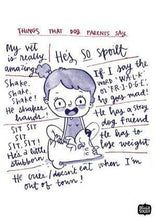 THINGS THAT DOG PARENTS SAY
My vet
is really
amazing!
He's SO spoilt
If I say the
word 'W.A.L.K'
or 'F.R.I.D.G.E'
he goes mad!
Shake.
Shake.
Shake!
He shakes
hands!
He has a
dog friend
SIT
SIT SIT
SIT!
He's a little
stubborn!
He has to
lose weight
He doesn't eat when I'm
out of town!